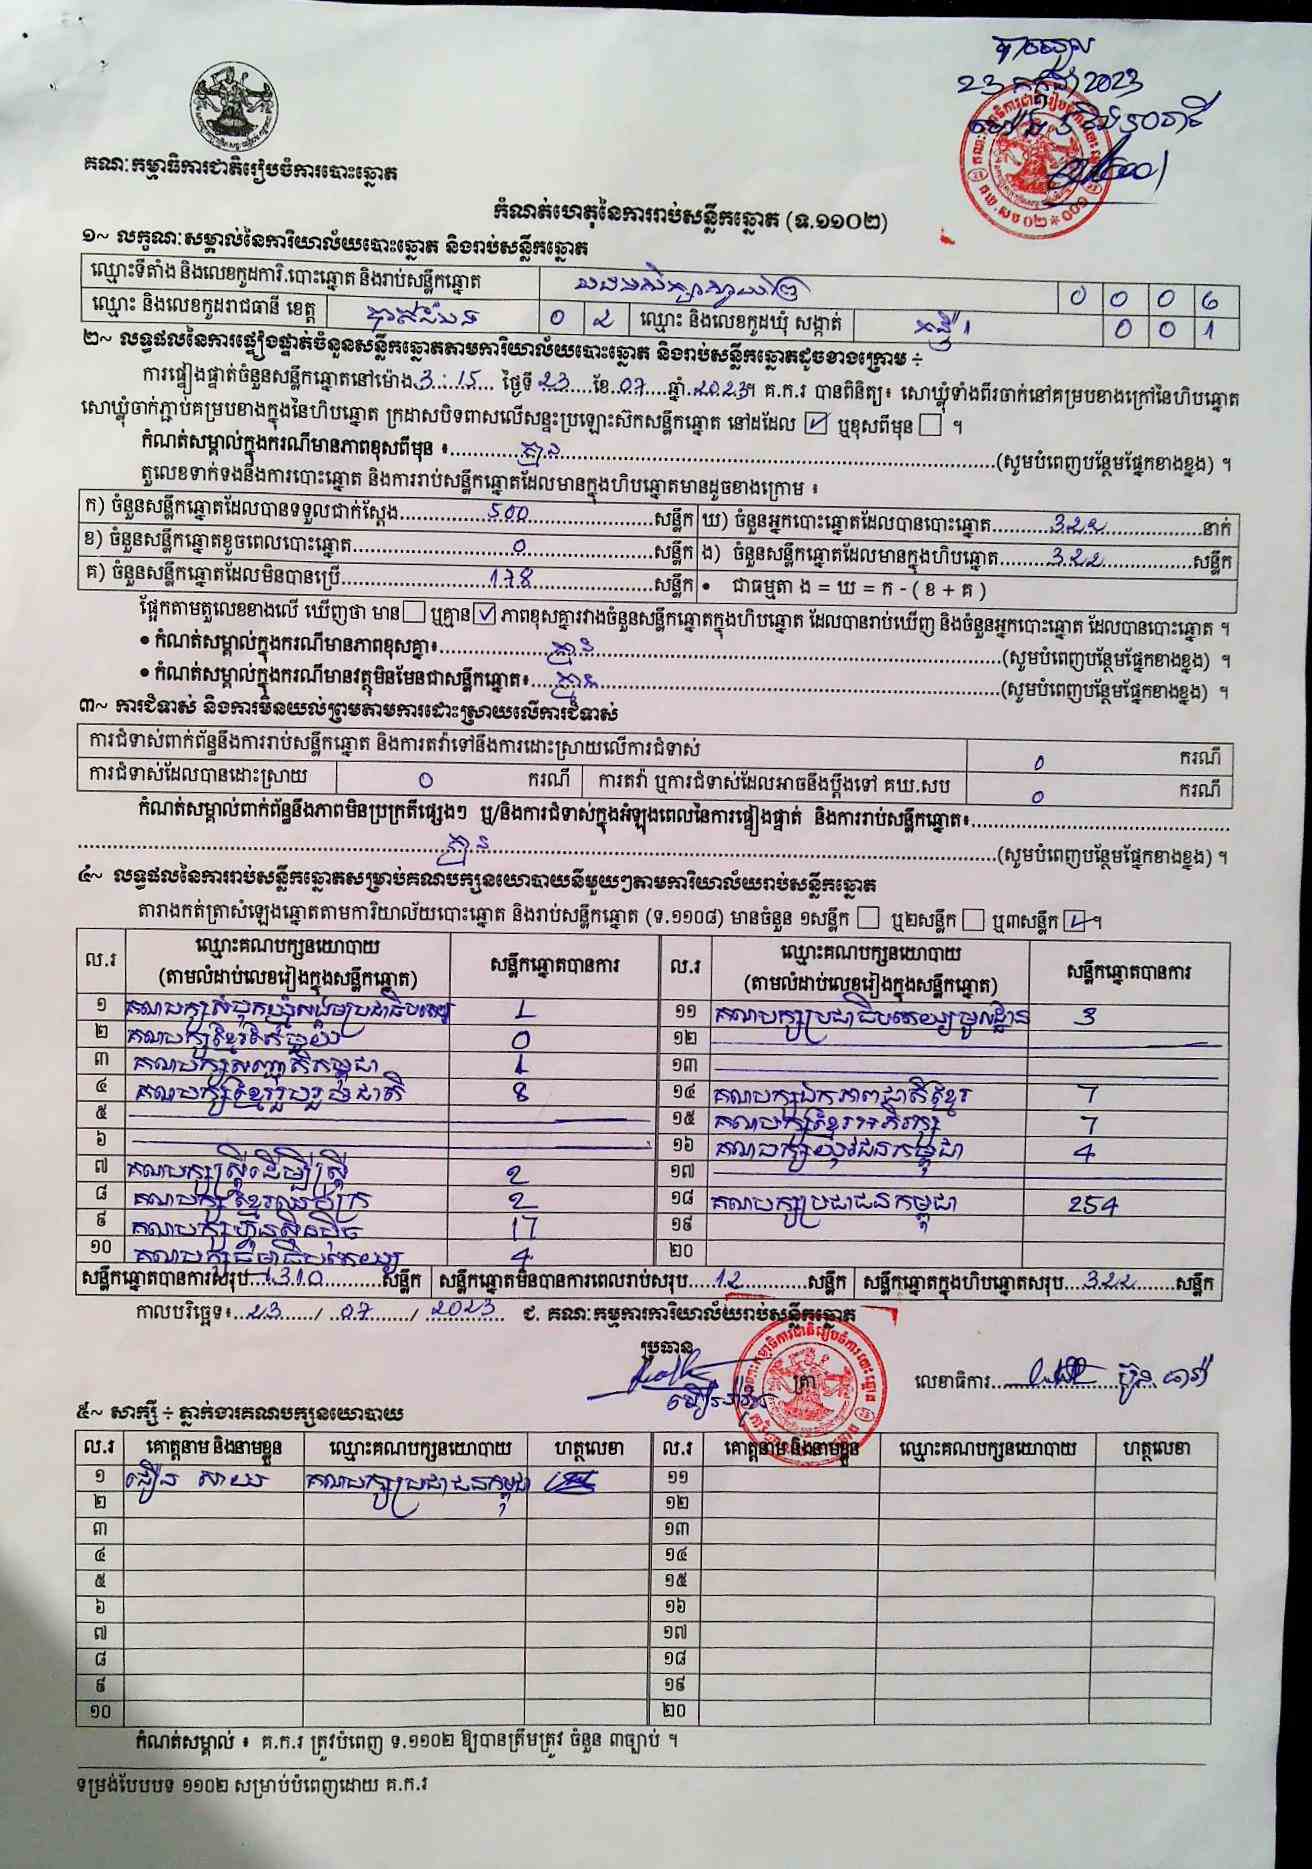 បានចូល
23 កក្កដា 2023
គណៈកម្មាធិការជាតិរៀបចំការបោះឆ្នោត
កំណត់ហេតុនៃការរាប់សន្លឹកឆ្នោត (ទ.១១០២)
១~ លក្ខណៈសម្គាល់នៃការិយាល័យបោះឆ្នោត និងរាប់សន្លឹកឆ្នោត
ឈ្មោះទីតាំង និងលេខកូដការិ.បោះឆ្នោត និងរាប់សន្លឹកឆ្នោត 0 0 0 6
ឈ្មោះ និងលេខកូដរាជធានី ខេត្ត បាត់ដំបង 0 2 ឈ្មោះ និងលេខកូដឃុំ សង្កាត់ 0 0 1
២~ លទ្ធផលនៃការផ្ទៀងផ្ទាត់ចំនួនសន្លឹកឆ្នោតតាមការិយាល័យបោះឆ្នោត និងរាប់សន្លឹកឆ្នោតដូចខាងក្រោម ÷
ការផ្ទៀងផ្ទាត់ចំនួនសន្លឹកឆ្នោតនៅម៉ោង 3:15 ថ្ងៃទី 23 ខែ 07 ឆ្នាំ 2023។ គ.ក.រ បានពិនិត្យ៖ សោឃ្លុំទាំងពីរចាក់នៅគម្របខាងក្រៅនៃហិបឆ្នោត
សោឃ្លុំចាក់ភ្ជាប់គម្របខាងក្នុងនៃហិបឆ្នោត ក្រដាសបិទពាសលើសន្ទះប្រឡោះស៊កសន្លឹកឆ្នោត នៅដដែល ☑ ឬខុសពីមុន ☐ ។
កំណត់សម្គាល់ក្នុងករណីមានភាពខុសពីមុន ៖ គ្មាន (សូមបំពេញបន្ថែមផ្នែកខាងខ្នង) ។
តួលេខទាក់ទងនឹងការបោះឆ្នោត និងការរាប់សន្លឹកឆ្នោតដែលមានក្នុងហិបឆ្នោតមានដូចខាងក្រោម ៖
ក) ចំនួនសន្លឹកឆ្នោតដែលបានទទួលជាក់ស្តែង 500 សន្លឹក ឃ) ចំនួនអ្នកបោះឆ្នោតដែលបានបោះឆ្នោត 322 នាក់
ខ) ចំនួនសន្លឹកឆ្នោតខូចពេលបោះឆ្នោត 0 សន្លឹក ង) ចំនួនសន្លឹកឆ្នោតដែលមានក្នុងហិបឆ្នោត 322 សន្លឹក
គ) ចំនួនសន្លឹកឆ្នោតដែលមិនបានប្រើ 178 សន្លឹក • ជាធម្មតា ង = ឃ = ក - ( ខ + គ )
ផ្អែកតាមតួលេខខាងលើ ឃើញថា មាន ☐ ឬគ្មាន ☑ ភាពខុសគ្នារវាងចំនួនសន្លឹកឆ្នោតក្នុងហិបឆ្នោត ដែលបានរាប់ឃើញ និងចំនួនអ្នកបោះឆ្នោត ដែលបានបោះឆ្នោត ។
• កំណត់សម្គាល់ក្នុងករណីមានភាពខុសគ្នា៖ គ្មាន (សូមបំពេញបន្ថែមផ្នែកខាងខ្នង) ។
• កំណត់សម្គាល់ក្នុងករណីមានវត្ថុមិនមែនជាសន្លឹកឆ្នោត៖ គ្មាន (សូមបំពេញបន្ថែមផ្នែកខាងខ្នង) ។
៣~ ការជំទាស់ និងការមិនយល់ព្រមតាមការដោះស្រាយលើការជំទាស់
ការជំទាស់ពាក់ព័ន្ធនឹងការរាប់សន្លឹកឆ្នោត និងការតវ៉ាទៅនឹងការដោះស្រាយលើការជំទាស់ 0 ករណី
ការជំទាស់ដែលបានដោះស្រាយ 0 ករណី ការតវ៉ា ឬការជំទាស់ដែលអាចនឹងប្តឹងទៅ គឃ.សប 0 ករណី
កំណត់សម្គាល់ពាក់ព័ន្ធនឹងភាពមិនប្រក្រតីផ្សេងៗ ឬ/និងការជំទាស់ក្នុងអំឡុងពេលនៃការផ្ទៀងផ្ទាត់ និងការរាប់សន្លឹកឆ្នោត៖
គ្មាន (សូមបំពេញបន្ថែមផ្នែកខាងខ្នង) ។
៤~ លទ្ធផលនៃការរាប់សន្លឹកឆ្នោតសម្រាប់គណបក្សនយោបាយនីមួយៗតាមការិយាល័យរាប់សន្លឹកឆ្នោត
តារាងកត់ត្រាសំឡេងឆ្នោតតាមការិយាល័យបោះឆ្នោត និងរាប់សន្លឹកឆ្នោត (ទ.១១០៨) មានចំនួន ១សន្លឹក ☐ ឬ២សន្លឹក ☐ ឬ៣សន្លឹក ☑ ។
ល.រ ឈ្មោះគណបក្សនយោបាយ (តាមលំដាប់លេខរៀងក្នុងសន្លឹកឆ្នោត) សន្លឹកឆ្នោតបានការ ល.រ ឈ្មោះគណបក្សនយោបាយ (តាមលំដាប់លេខរៀងក្នុងសន្លឹកឆ្នោត) សន្លឹកឆ្នោតបានការ
១ គណបក្សសំបុកឃ្មុំសង្គមប្រជាធិបតេយ្យ 1 ១១ គណបក្សប្រជាធិបតេយ្យមូលដ្ឋាន 3
២ គណបក្សខ្មែរតែមួយ 0 ១២
៣ គណបក្សសញ្ជាតិកម្ពុជា 1 ១៣
៤ គណបក្សខ្មែររួបរួមជាតិ 8 ១៤ គណបក្សឯកភាពជាតិខ្មែរ 7
៥ ១៥ គណបក្សខ្មែរអភិរក្ស 7
៦ ១៦ គណបក្សយុវជនកម្ពុជា 4
៧ គណបក្សស្ត្រីដើម្បីស្ត្រី 2 ១៧
៨ គណបក្សខ្មែរឈប់ក្រ 2 ១៨ គណបក្សប្រជាជនកម្ពុជា 254
៩ គណបក្សហ៊្វុនស៊ិនប៉ិច 17 ១៩
១០ គណបក្សធម្មាធិបតេយ្យ 4 ២០
សន្លឹកឆ្នោតបានការសរុប 310 សន្លឹក សន្លឹកឆ្នោតមិនបានការពេលរាប់សរុប 12 សន្លឹក សន្លឹកឆ្នោតក្នុងហិបឆ្នោតសរុប 322 សន្លឹក
កាលបរិច្ឆេទ៖ 23 / 07 / 2023 ជ. គណៈកម្មការការិយាល័យរាប់សន្លឹកឆ្នោត
ប្រធាន
ត្រា លេខាធិការ
៥~ សាក្សី ÷ ភ្នាក់ងារគណបក្សនយោបាយ
ល.រ គោត្តនាម និងនាមខ្លួន ឈ្មោះគណបក្សនយោបាយ ហត្ថលេខា ល.រ គោត្តនាម និងនាមខ្លួន ឈ្មោះគណបក្សនយោបាយ ហត្ថលេខា
១ គណបក្សប្រជាជនកម្ពុជា ១១
២ ១២
៣ ១៣
៤ ១៤
៥ ១៥
៦ ១៦
៧ ១៧
៨ ១៨
៩ ១៩
១០ ២០
កំណត់សម្គាល់ ៖ គ.ក.រ ត្រូវបំពេញ ទ.១១០២ ឱ្យបានត្រឹមត្រូវ ចំនួន ៣ច្បាប់ ។
ទម្រង់បែបបទ ១១០២ សម្រាប់បំពេញដោយ គ.ក.រ